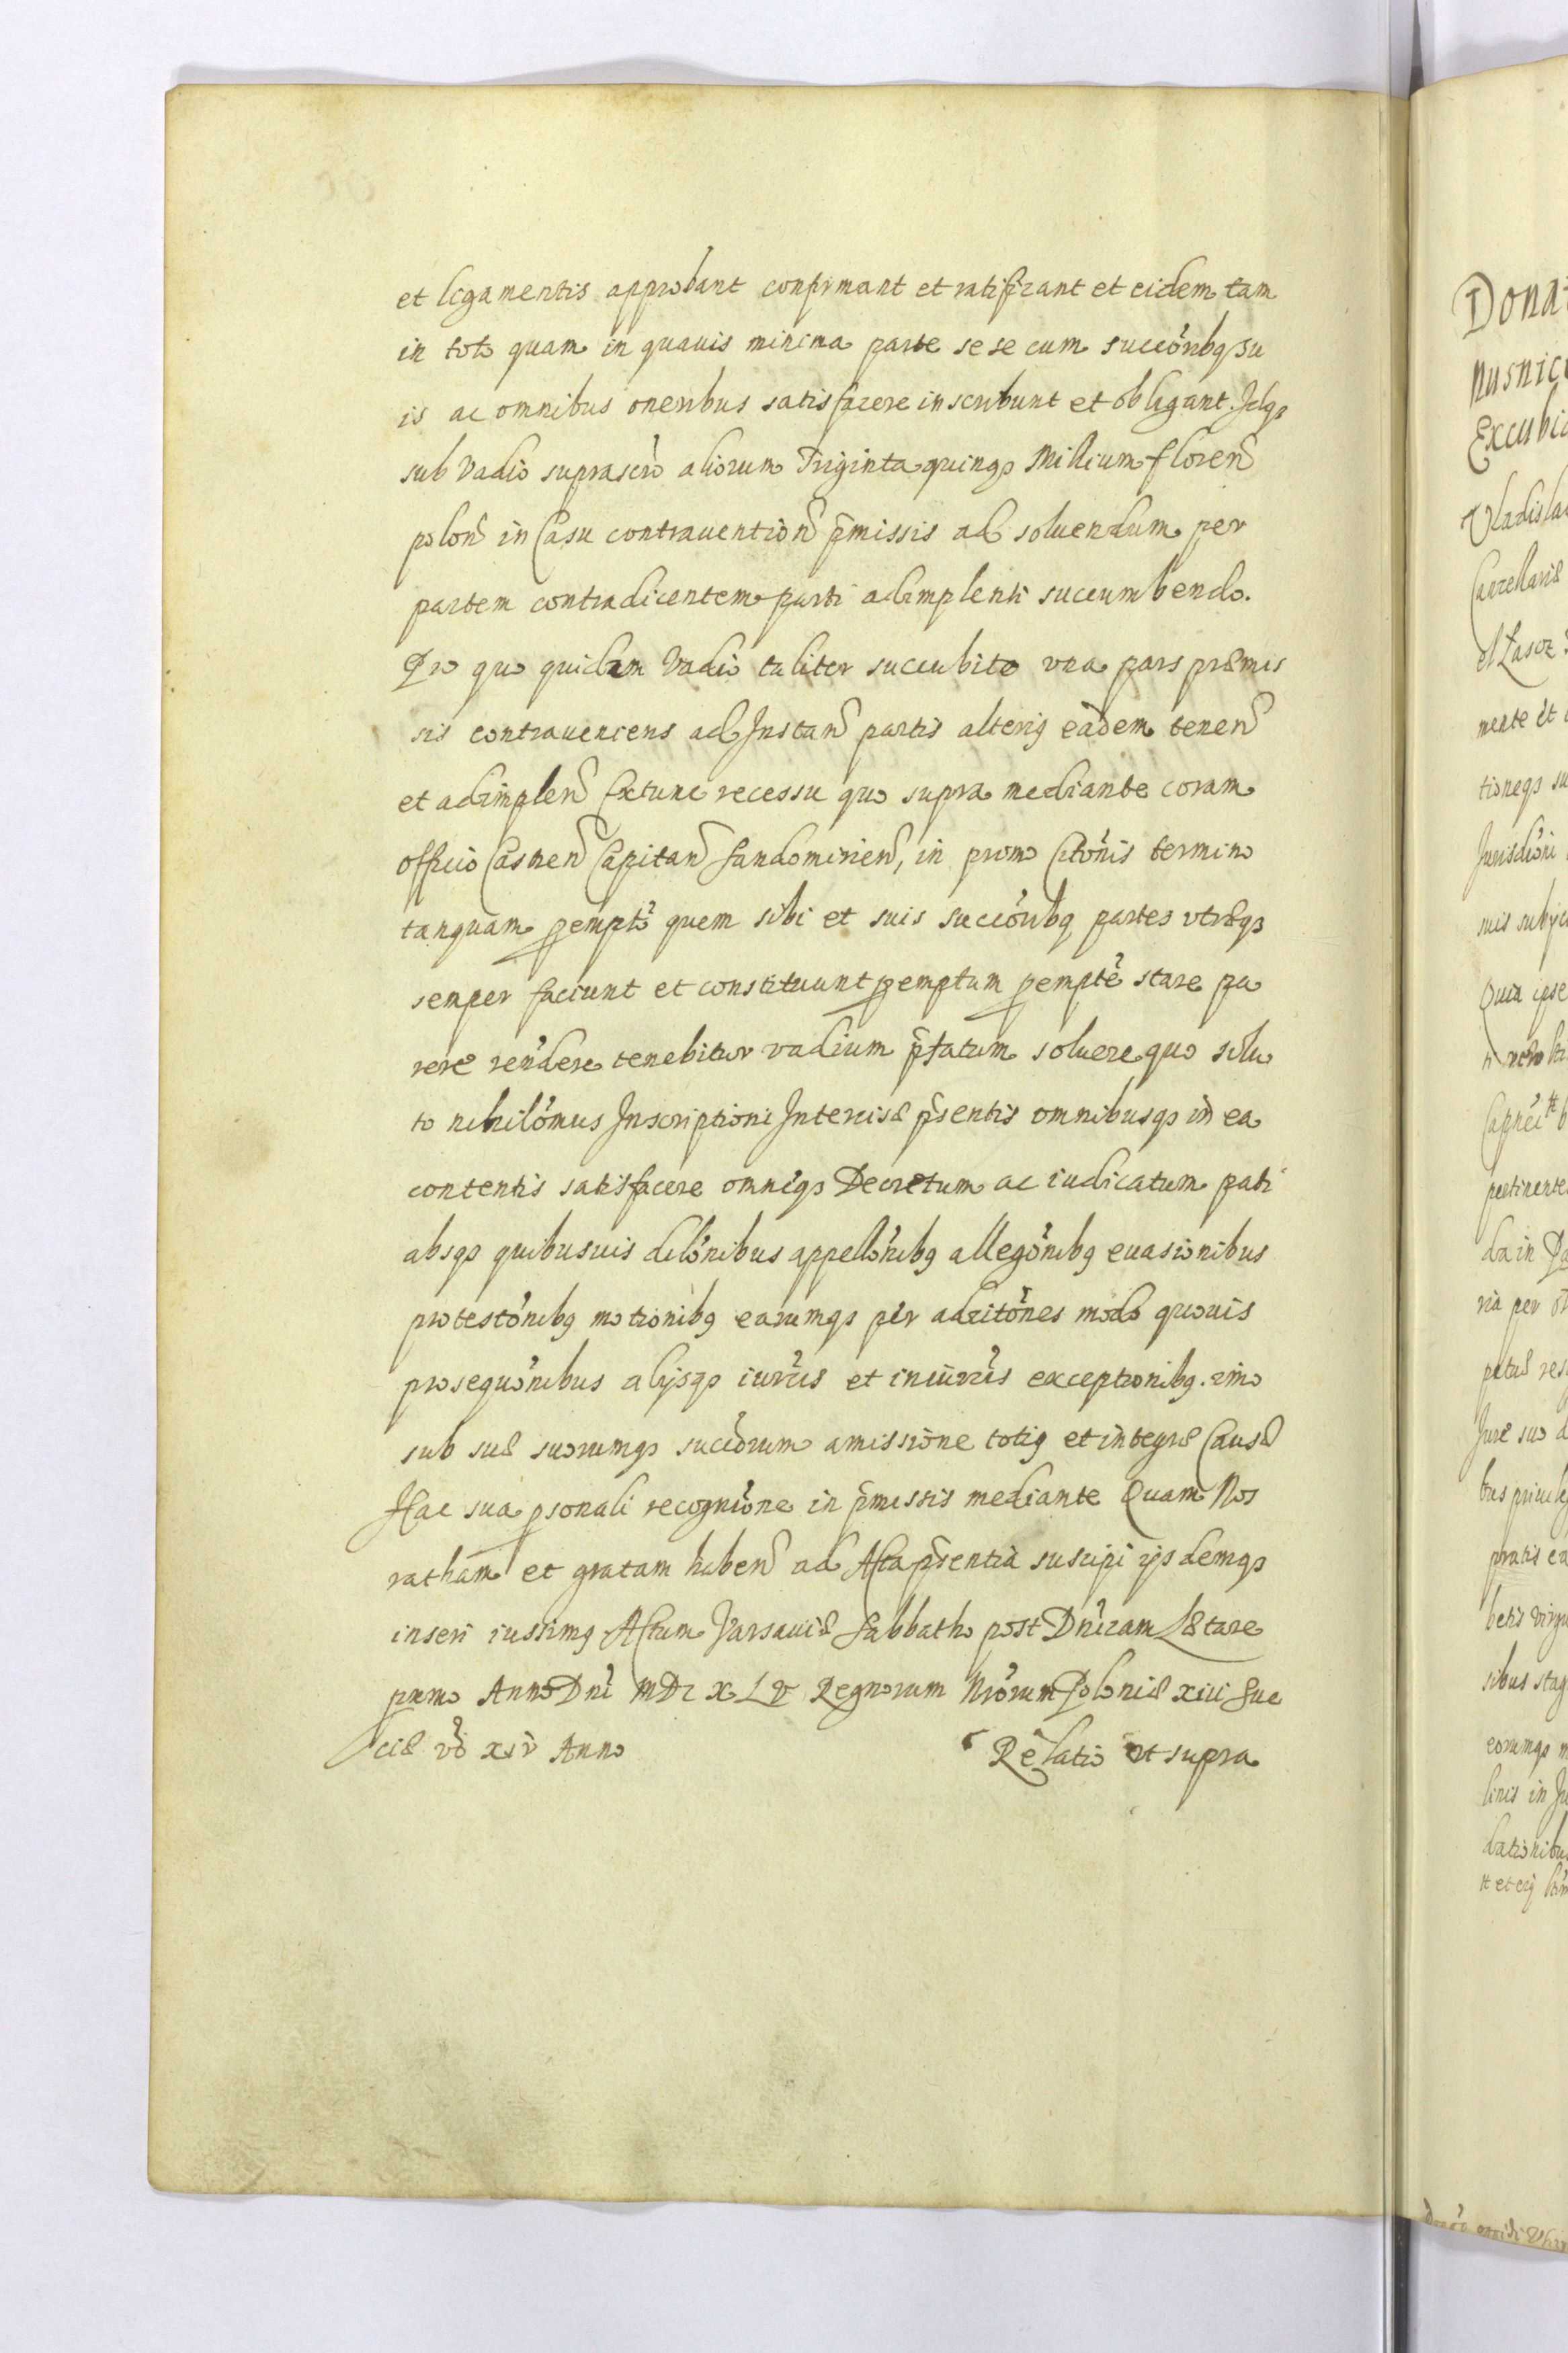 et ligamentis approbant confirmant et ratificant et eidem tam
in toto quam in quauis minima parte sese cum succõribq su
is ac omnibus oneribus satisfacere inscribunt et obligant. Idqȝ
sub Vadio suprascrõ aliorum Triginta quinqȝ Millium floreñ
poloñ in Casu contrauentioñ p̃missis ad soluendum per
partem contradicentem parti adimplenti succumbendo.
Pro quo quidem Vadio taliter succubito vna pars præmis
sis contraueniens ad Instañ partis alterig eadem teneñ
et adimpleñ Extunc recessu quo supra mediante coram
officio Castreñ Capitañ Sandomirieñ, in primo Citõnis termino
tanquam pempto quem sibi et suis succõribq partes vtræqȝ
semper faciunt et constituunt pemptum pempte stare pa
rere rendere tenebitur vadium p̃fatum soluere quo solu
to nihilõmus Inscriptioni Intercisæ p̃sentis omnibusqȝ in ea
contentis satisfacere omneqȝ Decretum ac iudicatum pati
absqȝ quibusuis dilõnibus appellõnibq allegõnibq euasionibus
protestõnibq motionibq earumqȝ per adcitõnes modo quouis
prosequõnibus alijsqȝ iuris et iniuris exceptionibq. imo
sub suæ suorumqȝ succõrum amissione totig et integræ Causæ
Hac sua psonali recognitõne in p̃missis mediante Quam Nos
ratham et gratam habeñ ad Acta p̃sentia suscipi ijsdemqȝ
inseri iussimq Actum Varsauiæ Sabbatho post Dnĩcam Lætare
primo Anno Dnĩ MDC XLV Regnorum Nrõrum Poloniæ xiii Sue
ciæ võ xiv Anno
Relatio vt supra
Donat
nusnic
Excubi
Vladisla
Cancellariæ
mente et
tioneqȝ su
Jurisdõni
suis subjic
Quia ipse
pertinente
da in
ria per
Jure suo a
bus priuileg
pratis ea
sibus stag
eorumqȝ
dationibu